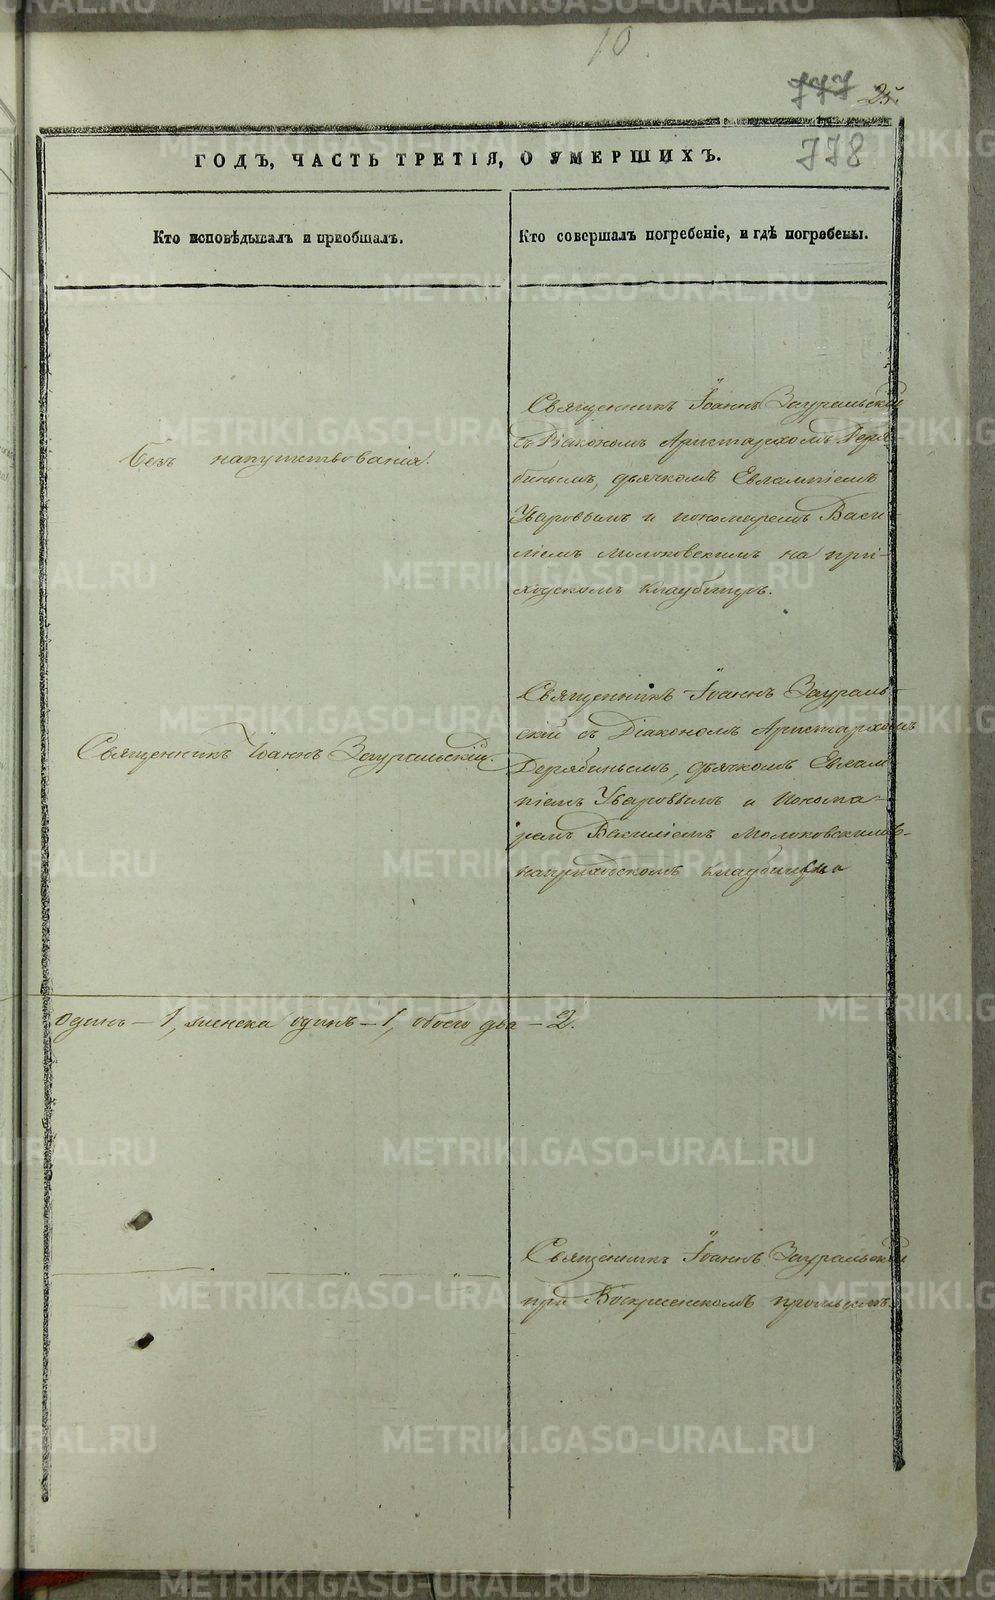 10
777 25.
778
ГОДЪ, ЧАСТЬ ТРЕТІЯ, О УМЕРШИХЪ.
Кто исповѣдывалъ и пріобщалъ.
Кто совершалъ погребеніе, и гдѣ погребены.
Безъ напутствованія.
Священникъ Іоаннъ Зауральскій
съ Діакономъ Аристархомъ Деря-
бинымъ, дьячкомъ Евлампіемъ
Уваровымъ и пономаремъ Васи-
ліемъ Молоковскимъ на при-
ходскомъ кладбищѣ.
Священникъ Іоаннъ Зауральскій.
Священникъ Іоаннъ Заураль-
скій съ Діакономъ Аристархомъ
Дерябинымъ, дьячкомъ Евлам
піемъ Уваровымъ и Понома-
ремъ Василіемъ Молоковскимъ
на приходскомъ кладбищѣ
одинъ - 1, женска одинъ - 1, обоего два - 2.
Священникъ Іоаннъ Зауральскій
при Воскресенскомъ
METRIKI.GASO-URAL.RU